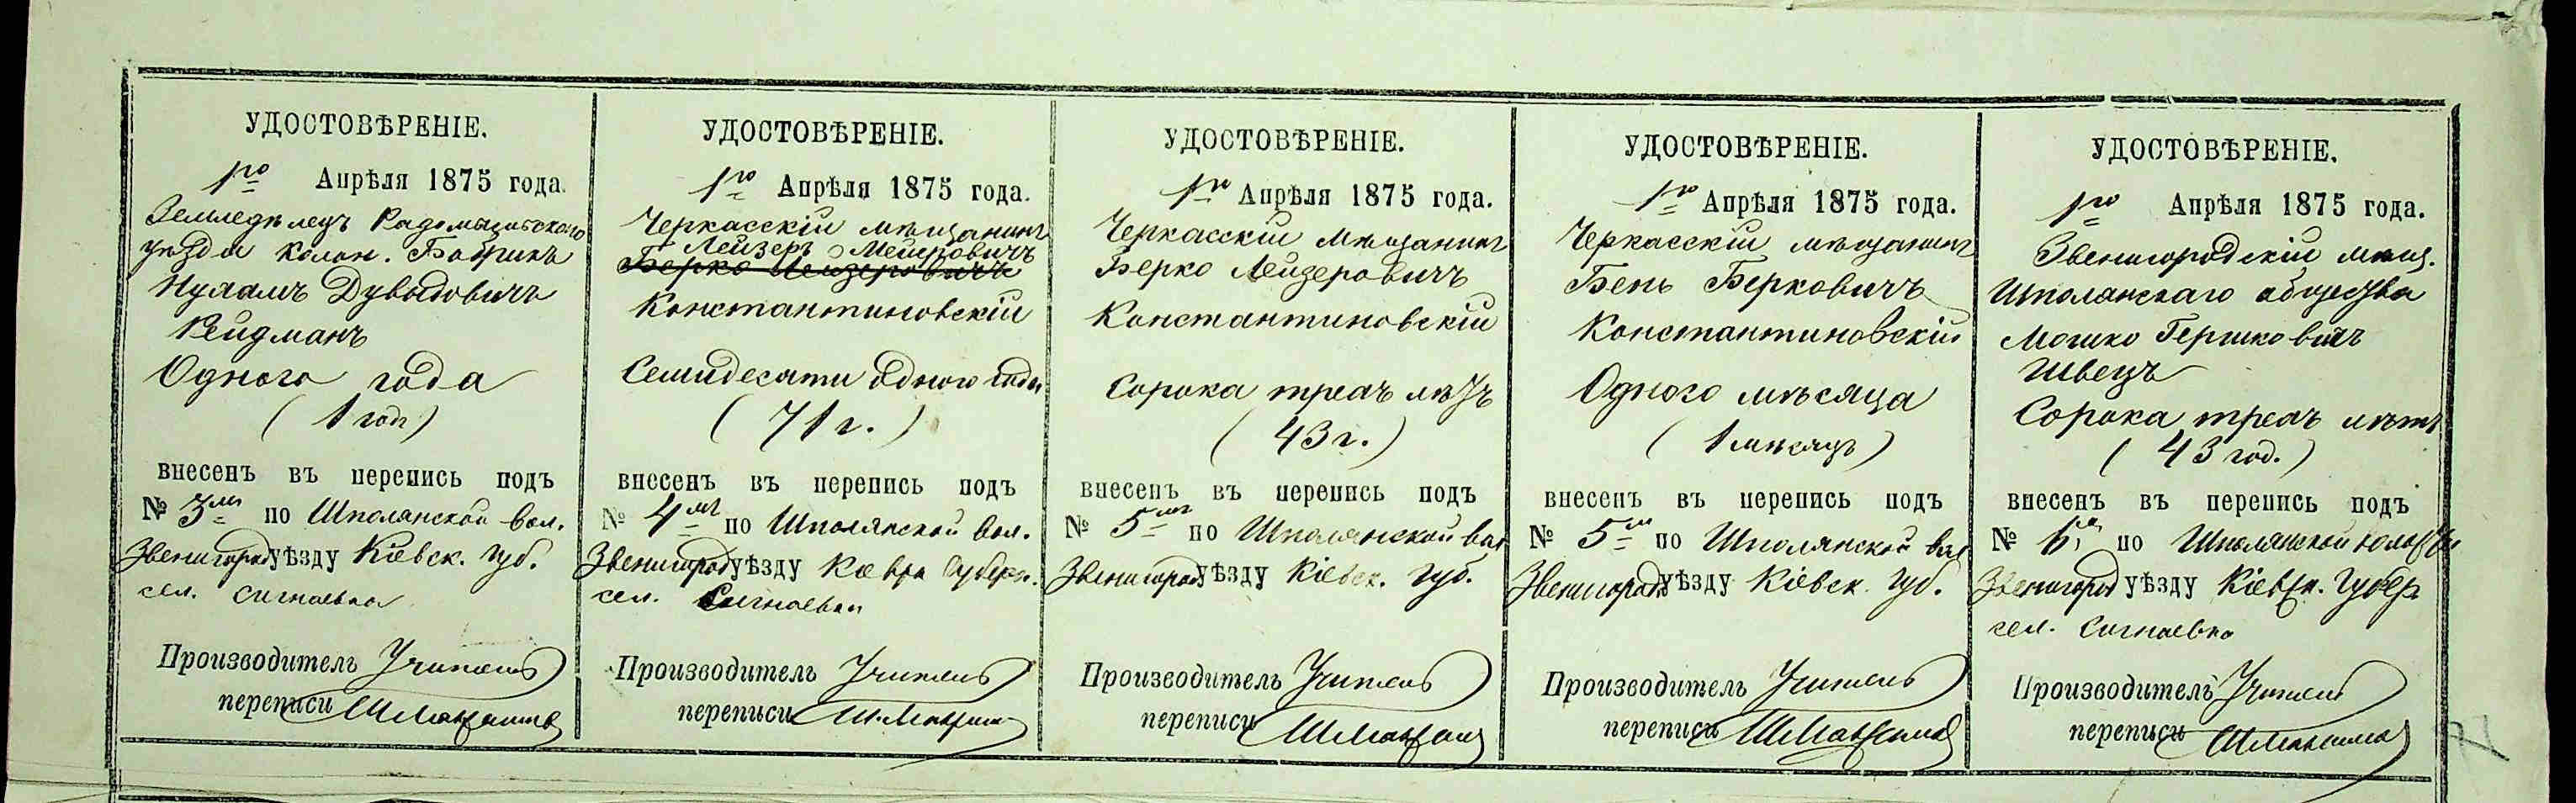 УДОСТОВѢРЕНІЕ.
1го Апрѣля 1875 года.
Земледѣлецъ Радомысльского
уѣзда колон. Бобрикъ
Нухамъ Дувыдовичъ
Рейдманъ
Одного года
(1 годъ)
внесенъ въ перепись подъ
№ 3мъ по Шполянской вол.
Звенигород уѣзду Кіевск. губ.
сел. Сигнаевка
Производитель Учитель
переписи
УДОСТОВѢРЕНІЕ.
1го Апрѣля 1875 года.
Черкасскій мѣщанинъ
Лейзеръ Мейеровичъ
Берко Лейзеровичъ
Константиновскій
Семидесяти одного года
(71 г.)
внесенъ въ перепись подъ
№ 4мъ по Шполянской вол.
Звенигород уѣзду Губерн.
сел. Сигнаевки
Производитель Учитель
переписи
УДОСТОВѢРЕНІЕ.
1го Апрѣля 1875 года.
Черкасскій мѣщанинъ
Берко Лейзеровичъ
Константиновскій
Сорока трехъ лѣтъ
(43 г.)
внесенъ въ перепись подъ
№ 5мъ по Шполянской вол
Звенигород уѣзду Кіевск. губ.
Производитель Учитель
переписи
УДОСТОВѢРЕНІЕ.
1го Апрѣля 1875 года.
Черкасскій мѣщанинъ
Бень Берковичъ
Константиновскій
Одного мѣсяца
(1 мѣсяцъ)
внесенъ въ перепись подъ
№ 5мъ по Шполянской вол
Звенигород уѣзду Кіевск. губ.
Производитель Учитель
переписи
УДОСТОВѢРЕНІЕ.
1го Апрѣля 1875 года.
Звенигородскій мѣщ.
Шполянскаго общества
Мошко Гершковичъ
Швецъ
Сорока трехъ лѣтъ
(43 год.)
внесенъ въ перепись подъ
№ 6 по Шполянской
Звенигород уѣзду Кіевск. Губер
сел. Сигнаевка
Производитель Учитель
переписи